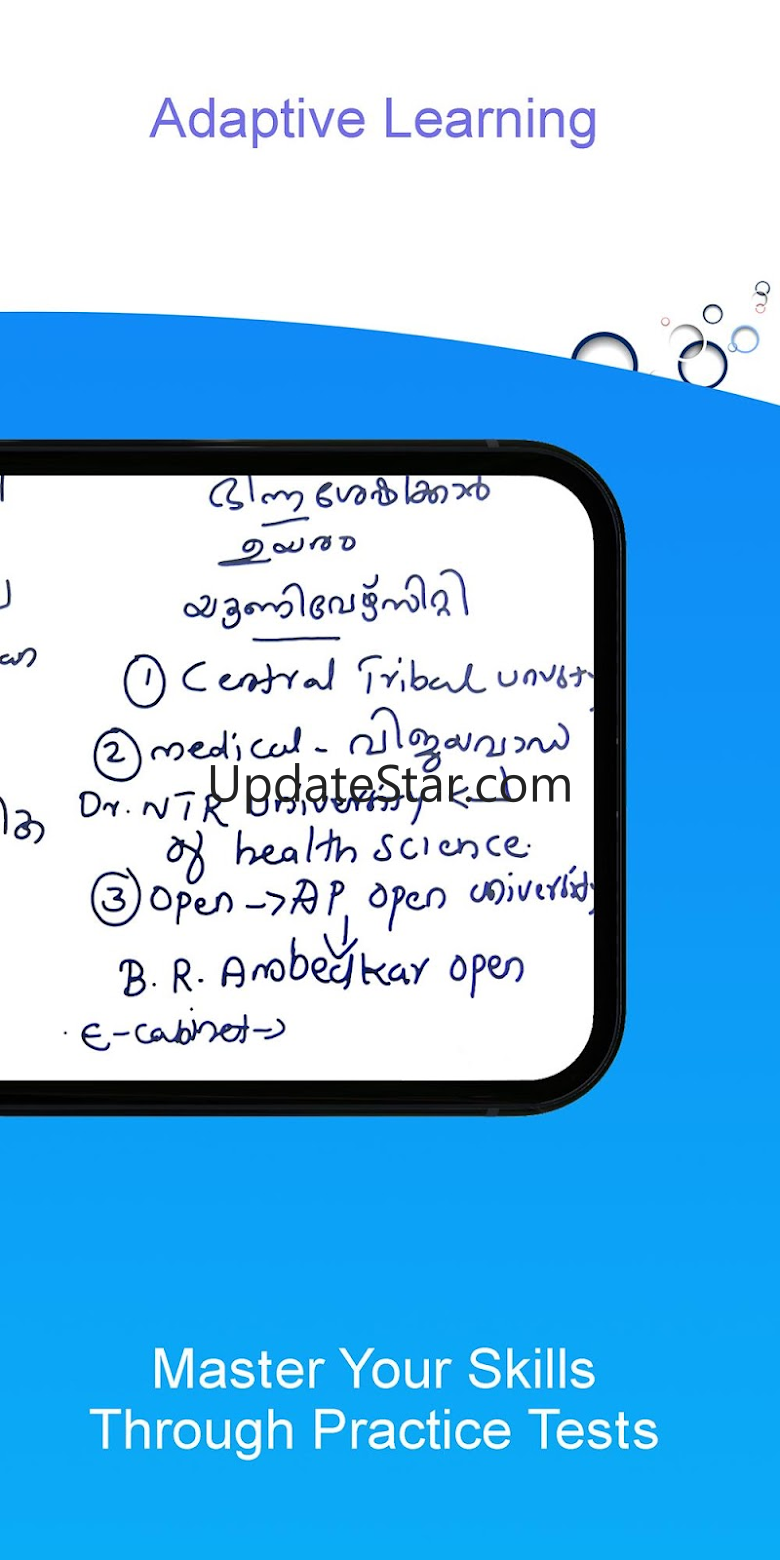 Adaptive Learning
ഭിന്ന ശേഷിക്കാർ
ഉയരം
യൂണിവേഴ്സിറ്റി
① Central Tribal
② medical - വിജയവാഡ
UpdateStar.com
Dr. NTR University
of health science.
③ Open -> AP open University
B. R. Ambedkar open
E-cabinet ->
Master Your Skills
Through Practice Tests